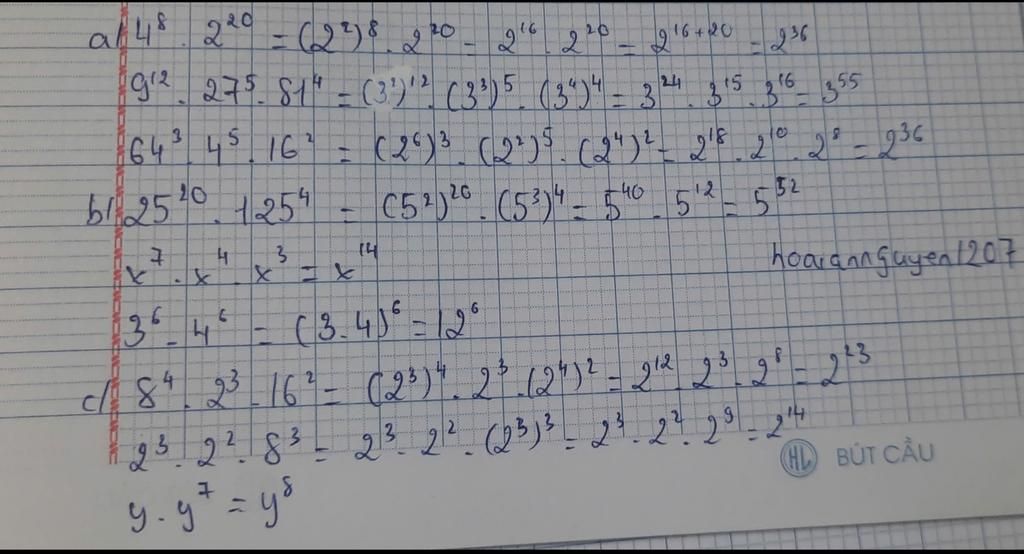 a) 4⁸ . 2²⁰ = (2²)⁸ . 2²⁰ = 2¹⁶ . 2²⁰ = 2¹⁶⁺²⁰ = 2³⁶
9¹² . 27⁵ . 81⁴ = (3²)¹² . (3³)⁵ . (3⁴)⁴ = 3²⁴ . 3¹⁵ . 3¹⁶ = 3⁵⁵
64³ . 4⁵ . 16² = (2⁶)³ . (2²)⁵ . (2⁴)² = 2¹⁸ . 2¹⁰ . 2⁸ = 2³⁶
b) 25²⁰ . 125⁴ = (5²)²⁰ . (5³)⁴ = 5⁴⁰ . 5¹² = 5⁵²
x⁷ . x⁴ . x³ = x¹⁴
hoaiannguyen1207
3⁶ . 4⁶ = (3.4)⁶ = 12⁶
c) 8⁴ . 2³ . 16² = (2³)⁴ . 2³ . (2⁴)² = 2¹² . 2³ . 2⁸ = 2²³
2³ . 2² . 8³ = 2³ . 2² . (2³)³ = 2³ . 2² . 2⁹ = 2¹⁴
HL BÚT CẦU
y . y⁷ = y⁸